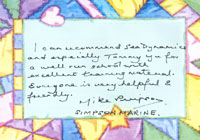 I can recommend Seadynamics
and especially Tammy for
a well run school with
excellent training material.
Everyone is very helpful &
friendly.
Mike Simpson
SIMPSON MARINE.